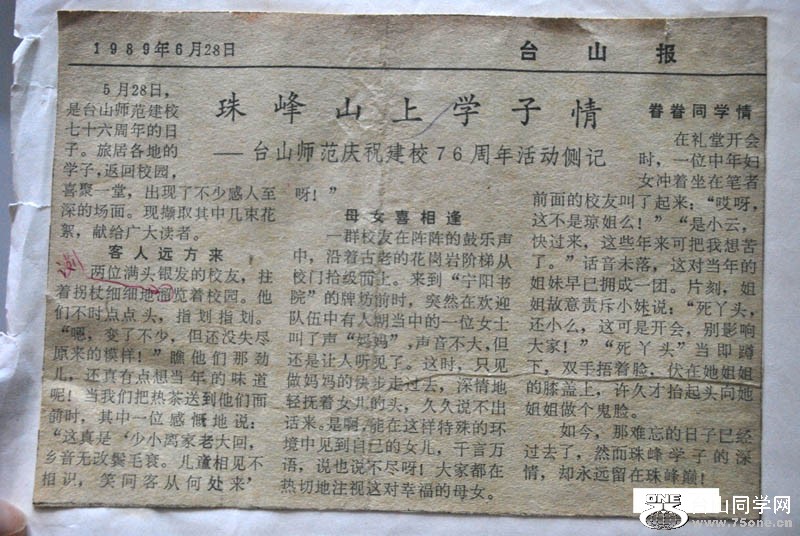 1989年6月28日
台山报
珠峰山上学子情
——台山师范庆祝建校76周年活动侧记
5月28日，
是台山师范建校
七十六周年的日
子。旅居各地的
学子，返回校园，
喜聚一堂，出现了不少感人至
深的场面。现撷取其中几束花
絮，献给广大读者。
客人远方来
两位满头银发的校友，拄
着拐杖细细地浏览着校园。他
们不时点点头，指划指划。
“嗯，变了不少，但还没失尽
原来的模样！”瞧他们那劲
儿，还真有点想当年的味道
呢！当我们把热茶送到他们面
前时，其中一位感慨地说：
“这真是‘少小离家老大回，
乡音无改鬓毛衰。儿童相见不
相识，笑问客从何处来’
呀！”
母女喜相逢
一群校友在阵阵的鼓乐声
中，沿着古老的花岗岩阶梯从
校门拾级而上。来到“宁阳书
院”的牌坊前时，突然在欢迎
队伍中有人朝当中的一位女士
叫了声“妈妈”，声音不大，但
还是让人听见了。这时，只见
做妈妈的快步走过去，深情地
轻抚着女儿的头，久久说不出
话来。是啊，能在这样特殊的环
境中见到自己的女儿，千言万
语，说也说不尽呀！大家都在
热切地注视这对幸福的母女。
眷眷同学情
在礼堂开会
时，一位中年妇
女冲着坐在笔者
前面的校友叫了起来：“哎呀，
这不是琼姐么！”“是小云，
快过来，这些年来可把我想苦
了。”话音未落，这对当年的
姐妹早已拥成一团。片刻，姐
姐故意责斥小妹说：“死丫头，
还小么，这可是开会，别影响
大家！”“死丫头”当即蹲
下，双手捂着脸，伏在她姐姐
的膝盖上，许久才抬起头向她
姐姐做个鬼脸。
如今，那难忘的日子已经
过去了，然而珠峰学子的深
情，却永远留在珠峰巅！
浏
ONE
山同学网
www.75one.cn